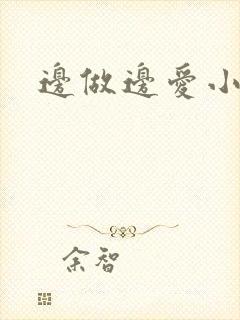 邊做邊愛小
余智